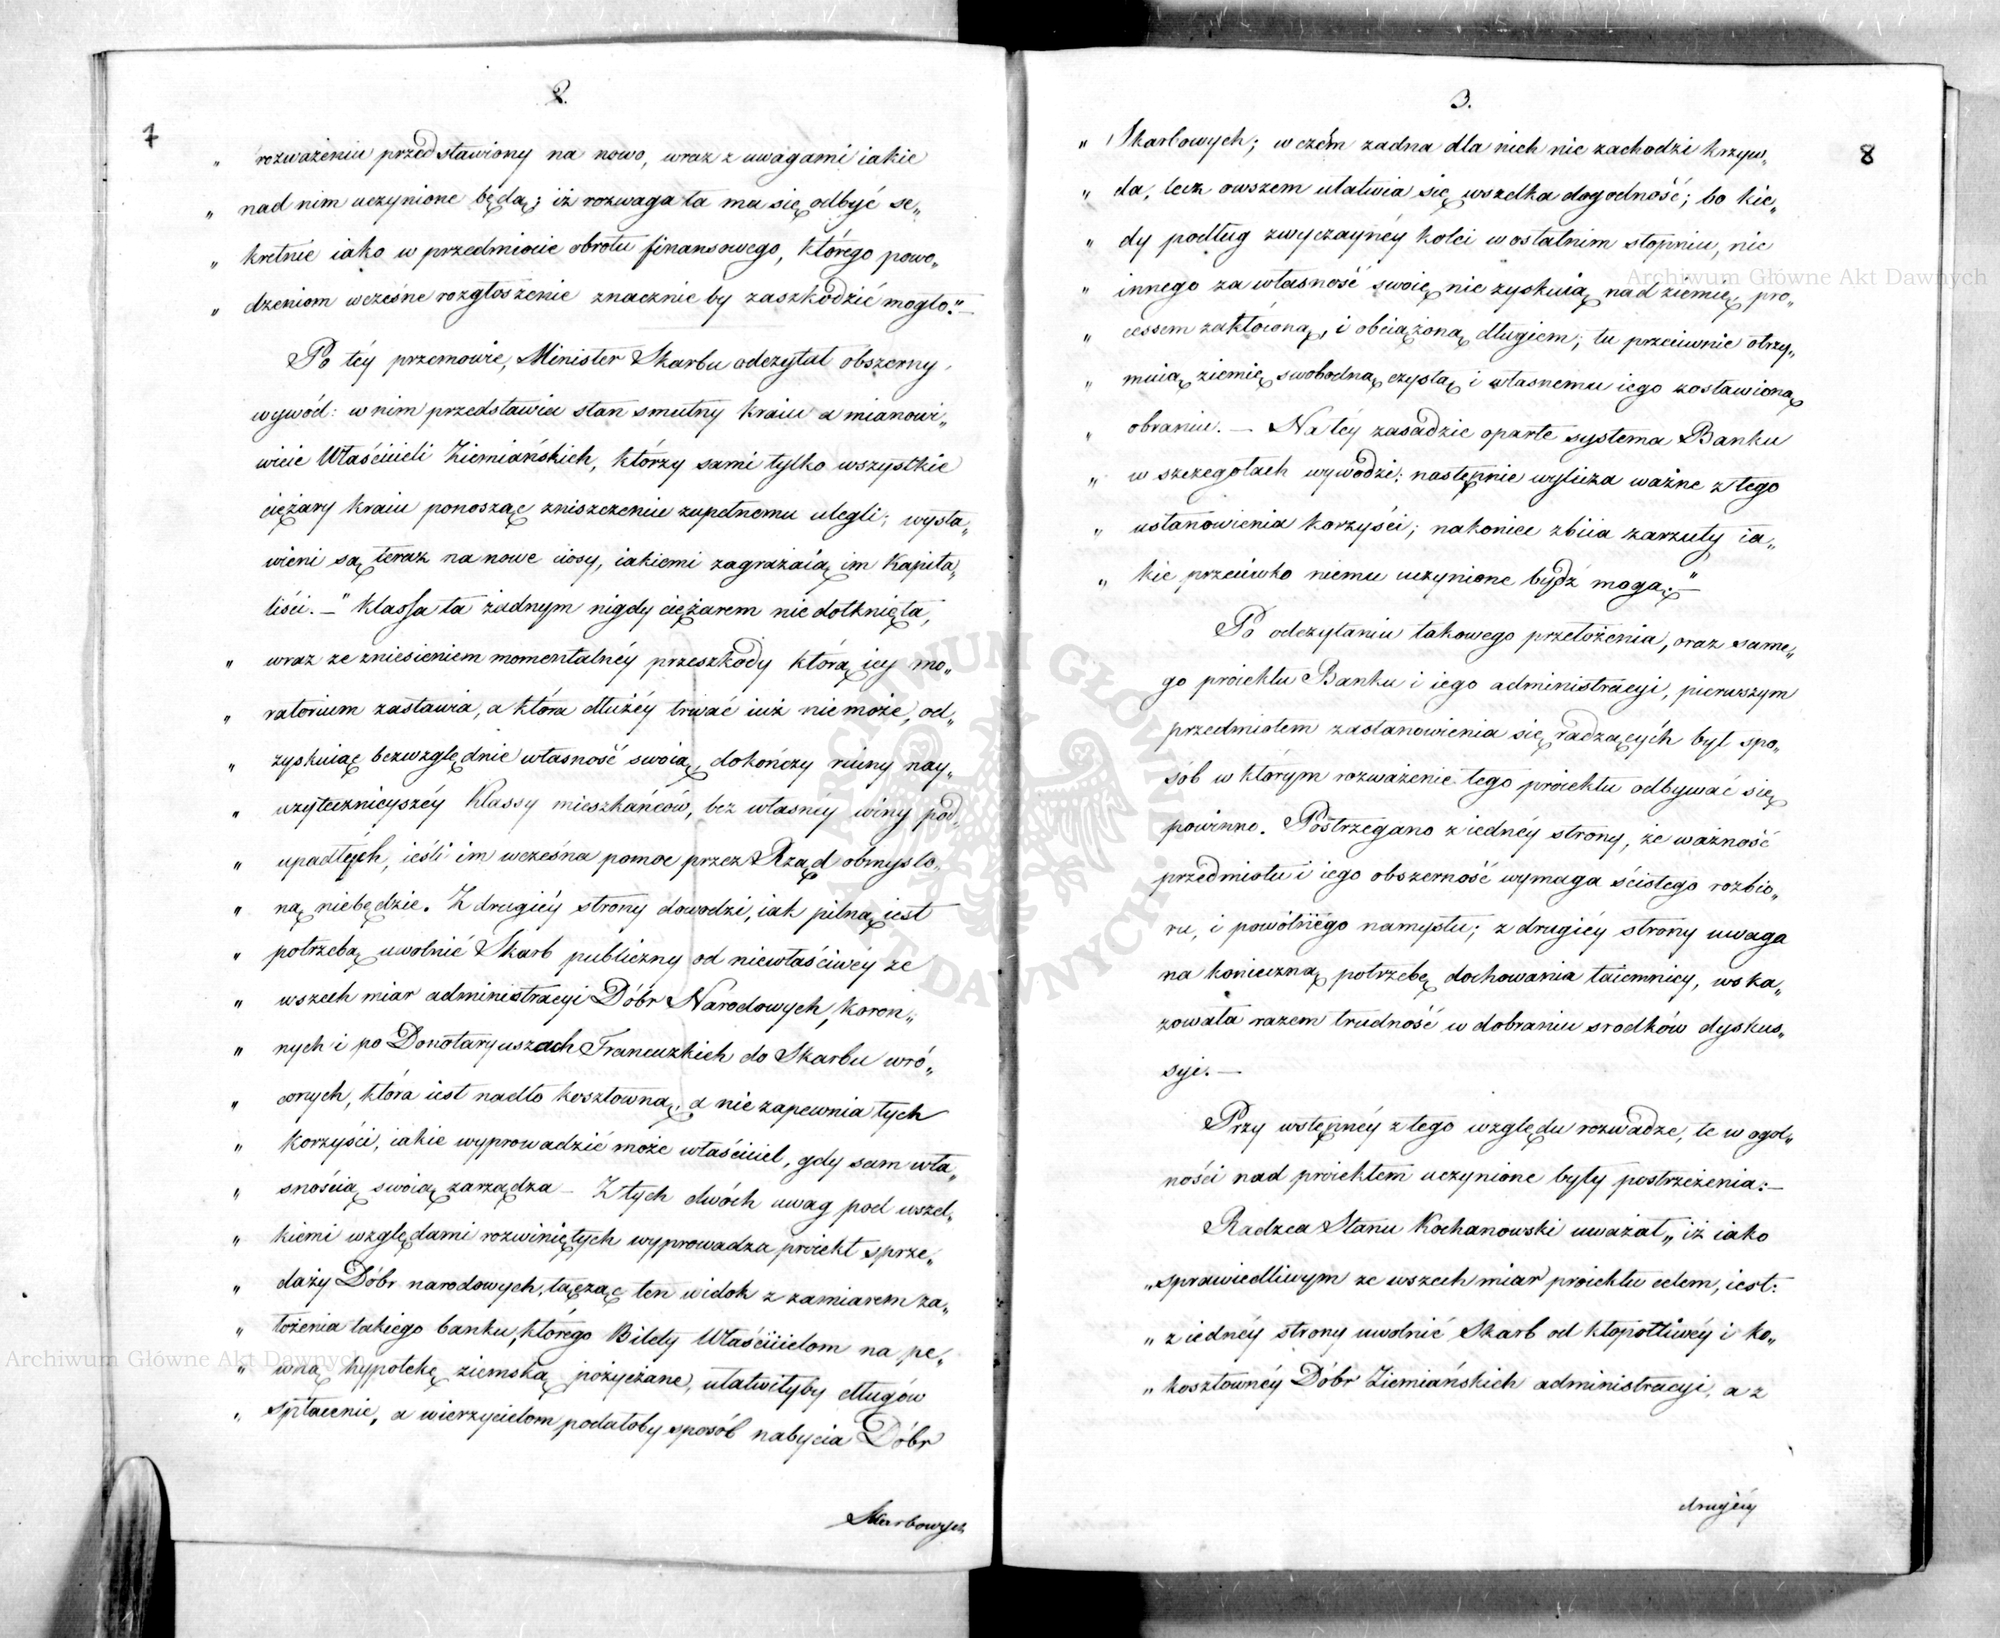 2.
7
„ rozważeniu przedstawiony na nowo, wraz z uwagami iakie
„ nad nim uczynione będą; iż rozwaga ta ma się odbyć se„
„ kretnie iako w przedmiocie obrotu finansowego, którego powo„
„ dzeniom wczesne rozgłoszenie znacznie by zaszkodzić mogło." —
Po téy przemowie, Minister Skarbu odczytał obszerny
wywód: w nim przedstawia stan smutny kraiu a mianowi„
wicie Właścicieli Ziemiańskich, którzy sami tylko wszystkie
ciężary kraiu ponosząc zniszczeniu zupełnemu ulegli; wysta„
wieni są teraz na nowe ciosy, iakiemi zagrażaią im Kapita„
liści. — " Klassa ta żadnym nigdy ciężarem nie dotknięta,
„ wraz ze zniesieniem momentalnéy przeszkody którą iey mo„
„ ratorium zastawia, a która dłużéy trwać iuż nie może, od„
„ zyskuiąc bezwzględnie własność swoią, dokończy ruiny nay„
„ użytecznieyszéy Klassy mieszkańców, bez własnéy winy pod„
„ upadłych, ieśli im wczesna pomoc przez Rząd obmyślo„
„ ną niebędzie. Z drugiéy strony dowodzi, iak pilną iest
„ potrzebą uwolnić Skarb publiczny od niewłaściwéy ze
„ wszech miar administracyi Dóbr Narodowych, koron„
„ nych i po Donotaryuszach Francuzkich do Skarbu wró„
„ conych, która iest nadto kosztowną, a nie zapewnia tych
„ korzyści, iakie wyprowadzić może właściciel, gdy sam wła„
„ snością swoią zarządza — Z tych dwóch uwag pod wszel„
„ kiemi względami rozwiniętych wyprowadza proiekt sprze„
„ daży Dóbr narodowych, łącząc ten widok z zamiarem za„
„ łożenia takiego banku, którego Bilety Właścicielom na pe„
„ wną hypotekę ziemską pożyczane, ułatwiłyby długów
„ spłacenie, a wierzycielom podałoby sposób nabycia Dóbr
Skarbowych
3.
8
„ Skarbowych; w czém żadna dla nich nie zachodzi krzyw„
„ da, lecz owszem ułatwia się wszelka dogodność; bo kie„
„ dy podług zwyczaynéy kolei w ostatnim stopniu, nic
„ innego za własność swoię nie zyskuią nad ziemię pro„
„ cessem zakłóconą, i obciążoną długiem; tu przeciwnie otrzy„
„ muią ziemię swobodną czystą i własnemu iego zostawioną
„ obraniu. — Na téy zasadzie oparte systema Banku
„ w szczegołach wywodzi; następnie wylicza ważne z tego
„ ustanowienia korzyści; nakoniec zbiia zarzuty ia„
„ kie przeciwko niemu uczynione bydź mogą." —
Po odczytaniu takowego przełożenia, oraz same„
go proiektu Banku i iego administracyi, pierwszym
przedmiotem zastanowienia się radzących był spo„
sób w którym rozważenie tego proiektu odbywać się
powinno. Postrzegano z iednéy strony, że ważność
przedmiotu i iego obszerność wymaga ścisłego rozbio„
ru, i powolnego namysłu; z drugiéy strony uwaga
na konieczną potrzebę dochowania taiemnicy, wska„
zowała razem trudność w dobraniu srodków dyskus„
syi. —
Przy wstępnéy z tego względu rozwadze, te w ogol„
ności nad proiektem uczynione były postrzeżenia: —
Radzca Stanu Kochanowski uważał „ iż iako
„ sprawiedliwym ze wszech miar proiektu celem, iest:
„ z iednéy strony uwolnić Skarb od kłopotliwéy i ko„
„ kosztownéy Dóbr Ziemiańskich administracyi, a z
drugiéy
Archiwum Główne Akt Dawnych
Archiwum Główne Akt Dawnych
ARCHIWUM GŁÓWNE AKT DAWNYCH